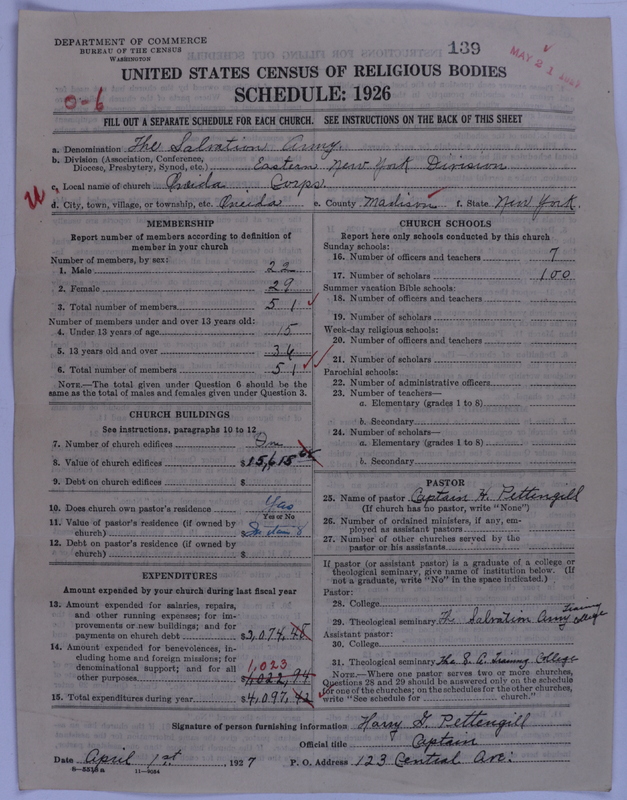 DEPARTMENT OF COMMERCE
BUREAU OF THE CENSUS
WASHINGTON
139
MAY 21 1927
UNITED STATES CENSUS OF RELIGIOUS BODIES
0-6
SCHEDULE: 1926
FILL OUT A SEPARATE SCHEDULE FOR EACH CHURCH. SEE INSTRUCTIONS ON THE BACK OF THIS SHEET
a. Denomination The Salvation Army
b. Division (Association, Conference, Diocese, Presbytery, Synod, etc.) Eastern New York Division
c. Local name of church Oneida Corps
d. City, town, village, or township, etc. Oneida e. County Madison f. State New York.
MEMBERSHIP
Report number of members according to definition of
member in your church
Number of members, by sex:
1. Male 22
2. Female 29
3. Total number of members 51
Number of members under and over 13 years old:
4. Under 13 years of age 15
5. 13 years old and over 36
6. Total number of members 51
NOTE.—The total given under Question 6 should be the
same as the total of males and females given under Question 3.
CHURCH BUILDINGS
See instructions, paragraphs 10 to 12
7. Number of church edifices One
8. Value of church edifices $15,615
9. Debt on church edifices $
10. Does church own pastor's residence Yes
Yes or No
11. Value of pastor's residence (if owned by
church) $
12. Debt on pastor's residence (if owned by
church) $
EXPENDITURES
Amount expended by your church during last fiscal year
13. Amount expended for salaries, repairs,
and other running expenses; for im-
provements or new buildings; and for
payments on church debt $3,074,48
14. Amount expended for benevolences, in-
cluding home and foreign missions; for
denominational support; and for all
other purposes 1,023 4,022,94
15. Total expenditures during year $4,097,42
CHURCH SCHOOLS
Report here only schools conducted by this church
Sunday schools:
16. Number of officers and teachers 7
17. Number of scholars 100
Summer vacation Bible schools:
18. Number of officers and teachers
19. Number of scholars
Week-day religious schools:
20. Number of officers and teachers
21. Number of scholars
Parochial schools:
22. Number of administrative officers
23. Number of teachers—
a. Elementary (grades 1 to 8)
b. Secondary
24. Number of scholars—
a. Elementary (grades 1 to 8)
b. Secondary
PASTOR
25. Name of pastor Captain H. Pettengill
(If church has no pastor, write "None")
26. Number of ordained ministers, if any, em-
ployed as assistant pastors
27. Number of other churches served by the
pastor or his assistants
If pastor (or assistant pastor) is a graduate of a college or
theological seminary, give name of institution below. (If
not a graduate, write "No" in the space indicated.)
Pastor:
28. College
29. Theological seminary The Salvation Army Training College
Assistant pastor:
30. College
31. Theological seminary The S. A. Training College
NOTE.—Where one pastor serves two or more churches,
Questions 28 and 29 should be answered only on the schedule
for one of the churches; on the schedules for the other churches,
write "See schedule for church."
Signature of person furnishing information Harry G. Pettengill
Official title Captain
Date April 1st, 1927 P. O. Address 123 Central Ave.
8—5518a 11—9084